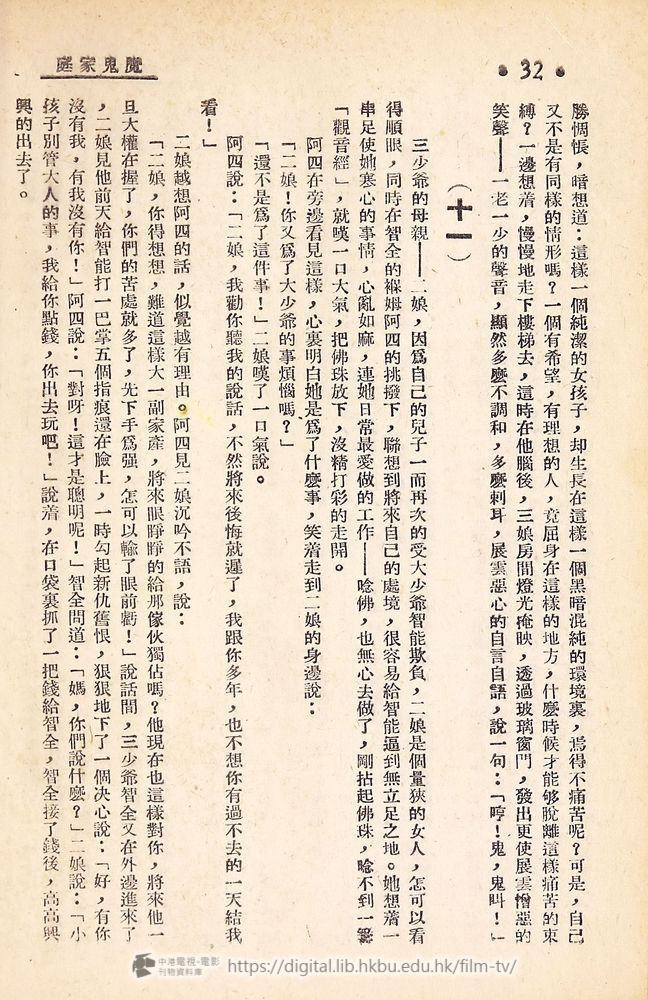 魔鬼家庭
•32•
勝惆悵，暗想道：這樣一個純潔的女孩子，却生長在這樣一個黑暗混純的環境裏，焉得不痛苦呢？可是，自己
又不是有同樣的情形嗎？一個有希望，有理想的人，竟屈身在這樣的地方，什麼時候才能够脫離這樣痛苦的束
縛？一邊想着，慢慢地走下樓梯去，這時在他腦後，三娘房間燈光掩映，透過玻璃窗門，發出更使展雲憎惡的
笑聲——一老一少的聲音，顯然多麼不調和，多麼刺耳，展雲惡心的自言自語，說一句：「哼！鬼，鬼叫！」
（十一）
三少爺的母親——二娘，因爲自己的兒子一而再次的受大少爺智能欺負，二娘是個量狹的女人，怎可以看
得順眼，同時在智全的褓姆阿四的挑撥下，聯想到將來自己的處境，很容易給智能逼到無立足之地。她想着一
串足使她寒心的事情，心亂如麻，連她日常最愛做的工作——唸佛，也無心去做了，剛拈起佛珠，唸不到一篇
「觀音經」，就嘆一口大氣，把佛珠放下，沒精打彩的走開。
阿四在旁邊看見這樣，心裏明白她是爲了什麼事，笑着走到二娘的身邊說：
「二娘！你又爲了大少爺的事煩惱嗎？」
「還不是爲了這件事！」二娘嘆了一口氣說。
阿四說：「二娘，我勸你聽我的說話，不然將來後悔就遲了，我跟你多年，也不想你有過不去的一天結我
看！」
二娘越想阿四的話，似覺越有理由。阿四見二娘沉吟不語，說：
「二娘，你得想想，難道這樣大一副家產，將來眼睜睜的給那傢伙獨佔嗎？他現在也這樣對你，將來他一
旦大權在握了，你們的苦處就多了，先下手爲强，怎可以輸了眼前虧！」說話間，三少爺智全又在外邊進來了
，二娘見他前天給智能打一巴掌五個指痕還在臉上，一時勾起新仇舊恨，狠狠地下了一個決心說：「好，有你
沒有我，有我沒有你！」阿四說：「對呀！這才是聰明呢！」智全問道：「媽，你們說什麼？」二娘說：「小
孩子別管大人的事，我給你點錢，你出去玩吧！」說着，在口袋裏抓了一把錢給智全，智全接了錢後，高高興
興的出去了。
中港電視·電影
刊物資料庫
https://digital.lib.hkbu.edu.hk/film-tv/